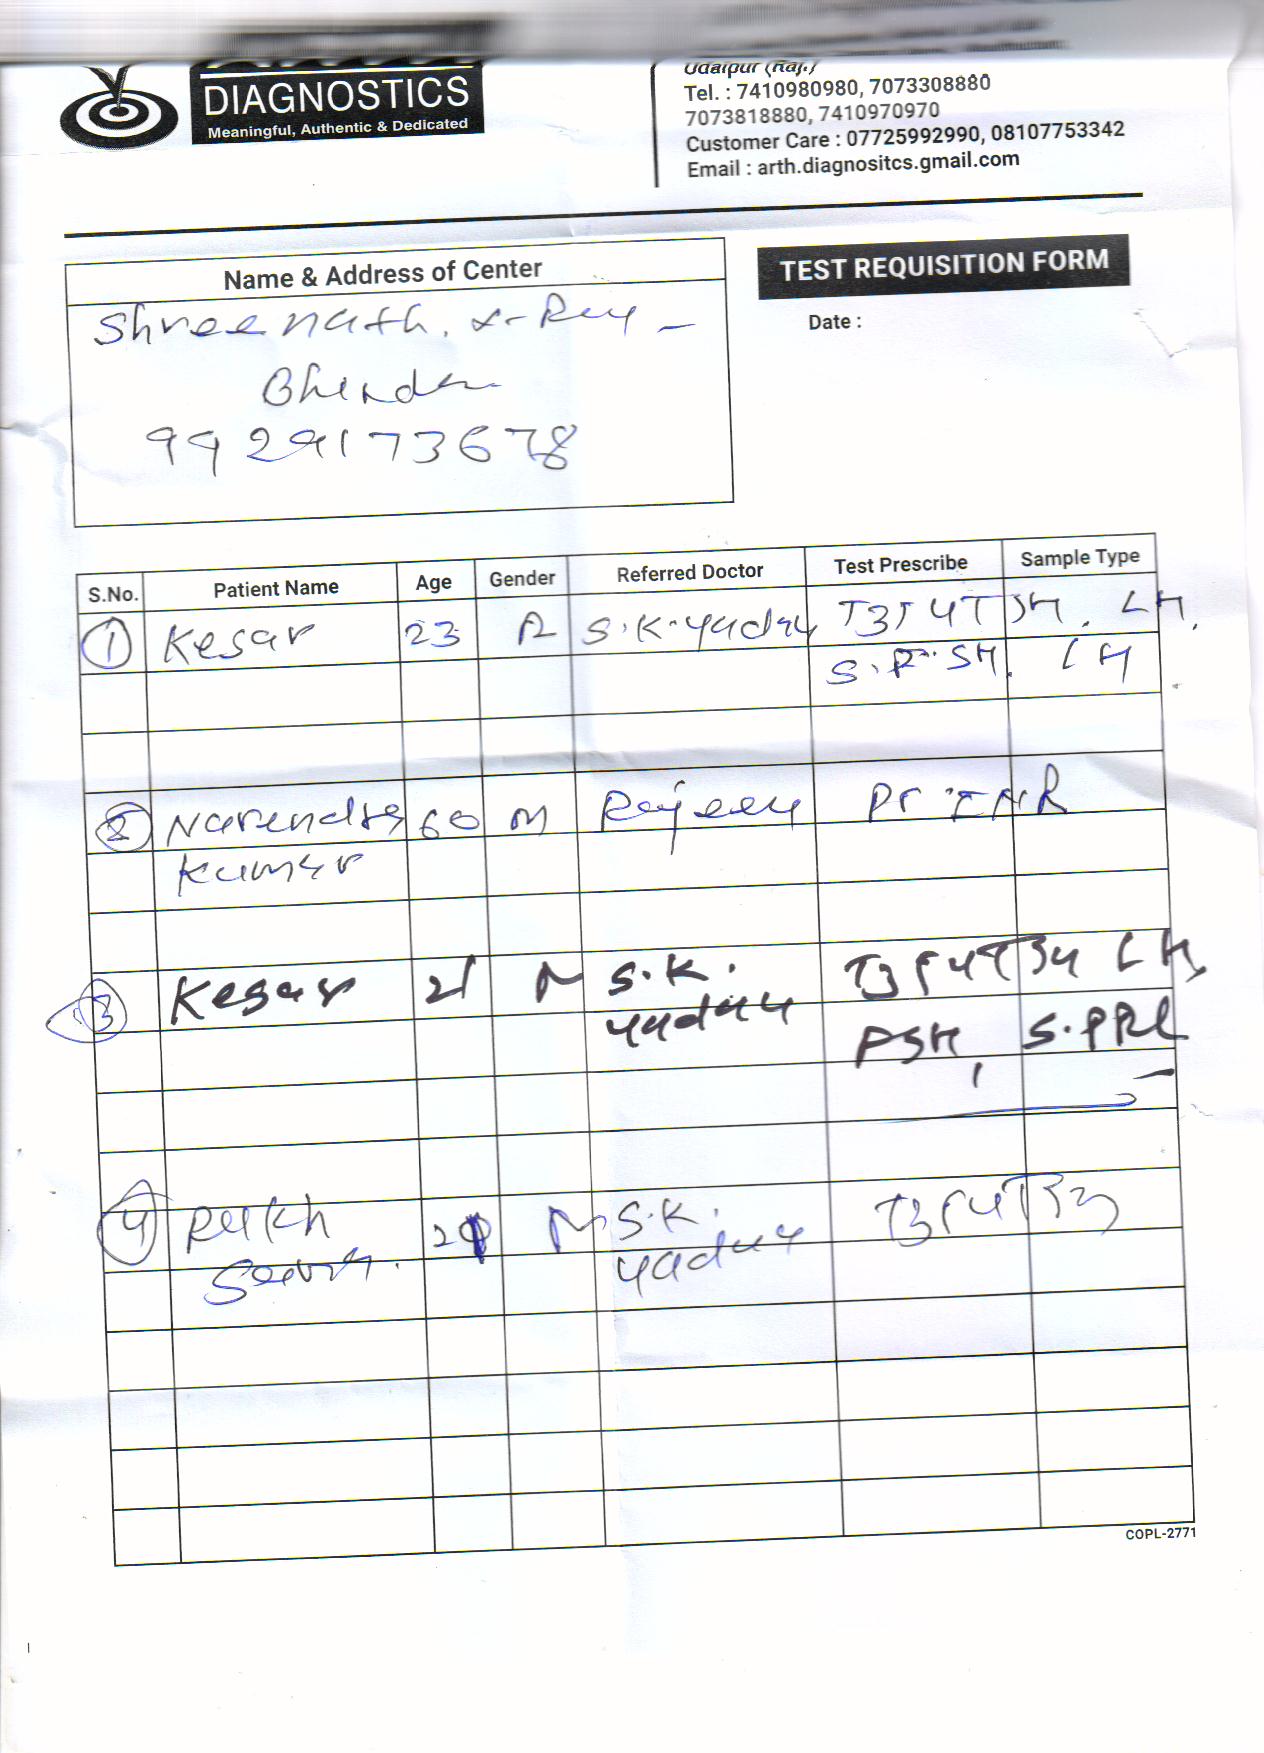 DIAGNOSTICS
Meaningful, Authentic & Dedicated
Udaipur (Raj.)
Tel. : 7410980980, 7073308880
7073818880, 7410970970
Customer Care : 07725992990, 08107753342
Email : arth.diagnositcs.gmail.com
Name & Address of Center
TEST REQUISITION FORM
Date :
Shreenath. x-Ray -
Bhinder
9929173678
S.No. Patient Name Age Gender Referred Doctor Test Prescribe Sample Type
1 Kesar 23 S.K.yadav T3T4TSH. LH,
S.FSH. LH
2 Narendra 60 M Rajeev PT INR
Kumar
3 Kesar 21 M S.K. T3T4TSH LH,
yadav FSH, S.PRL
4 S.K. T3T4TSH
yadav
COPL-2771